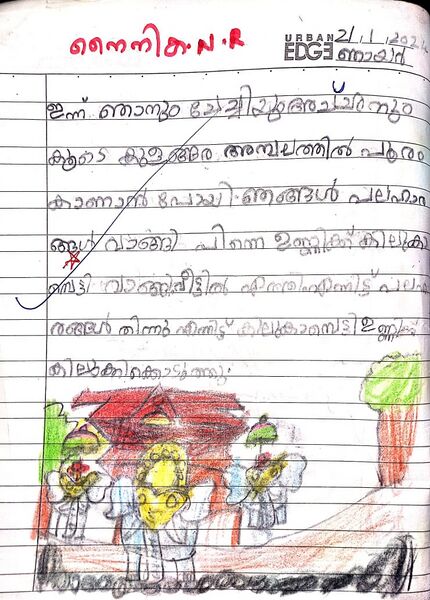 നൈനിക.N.R
URBAN
EDGE
21.1.2024
ഞായർ
ഇന്ന് ഞാനും ചേച്ചിയും അച്ഛനും
കൂടെ കുളങ്ങര അമ്പലത്തിൽ പൂരം
കാണാൻ പോയി. ഞങ്ങൾ പലഹാര
ങ്ങൾ വാങ്ങി പിന്നെ ഉണ്ണിക്ക് കിലുകാ
മ്പെട്ടി വാങ്ങു വീട്ടിൽ എത്തി എന്നിട്ട് പലഹ
രങ്ങൾ തിന്നു എന്നിട്ട് കിലുകാമ്പെട്ടി
കിലുക്കിക്കൊടുത്തു.